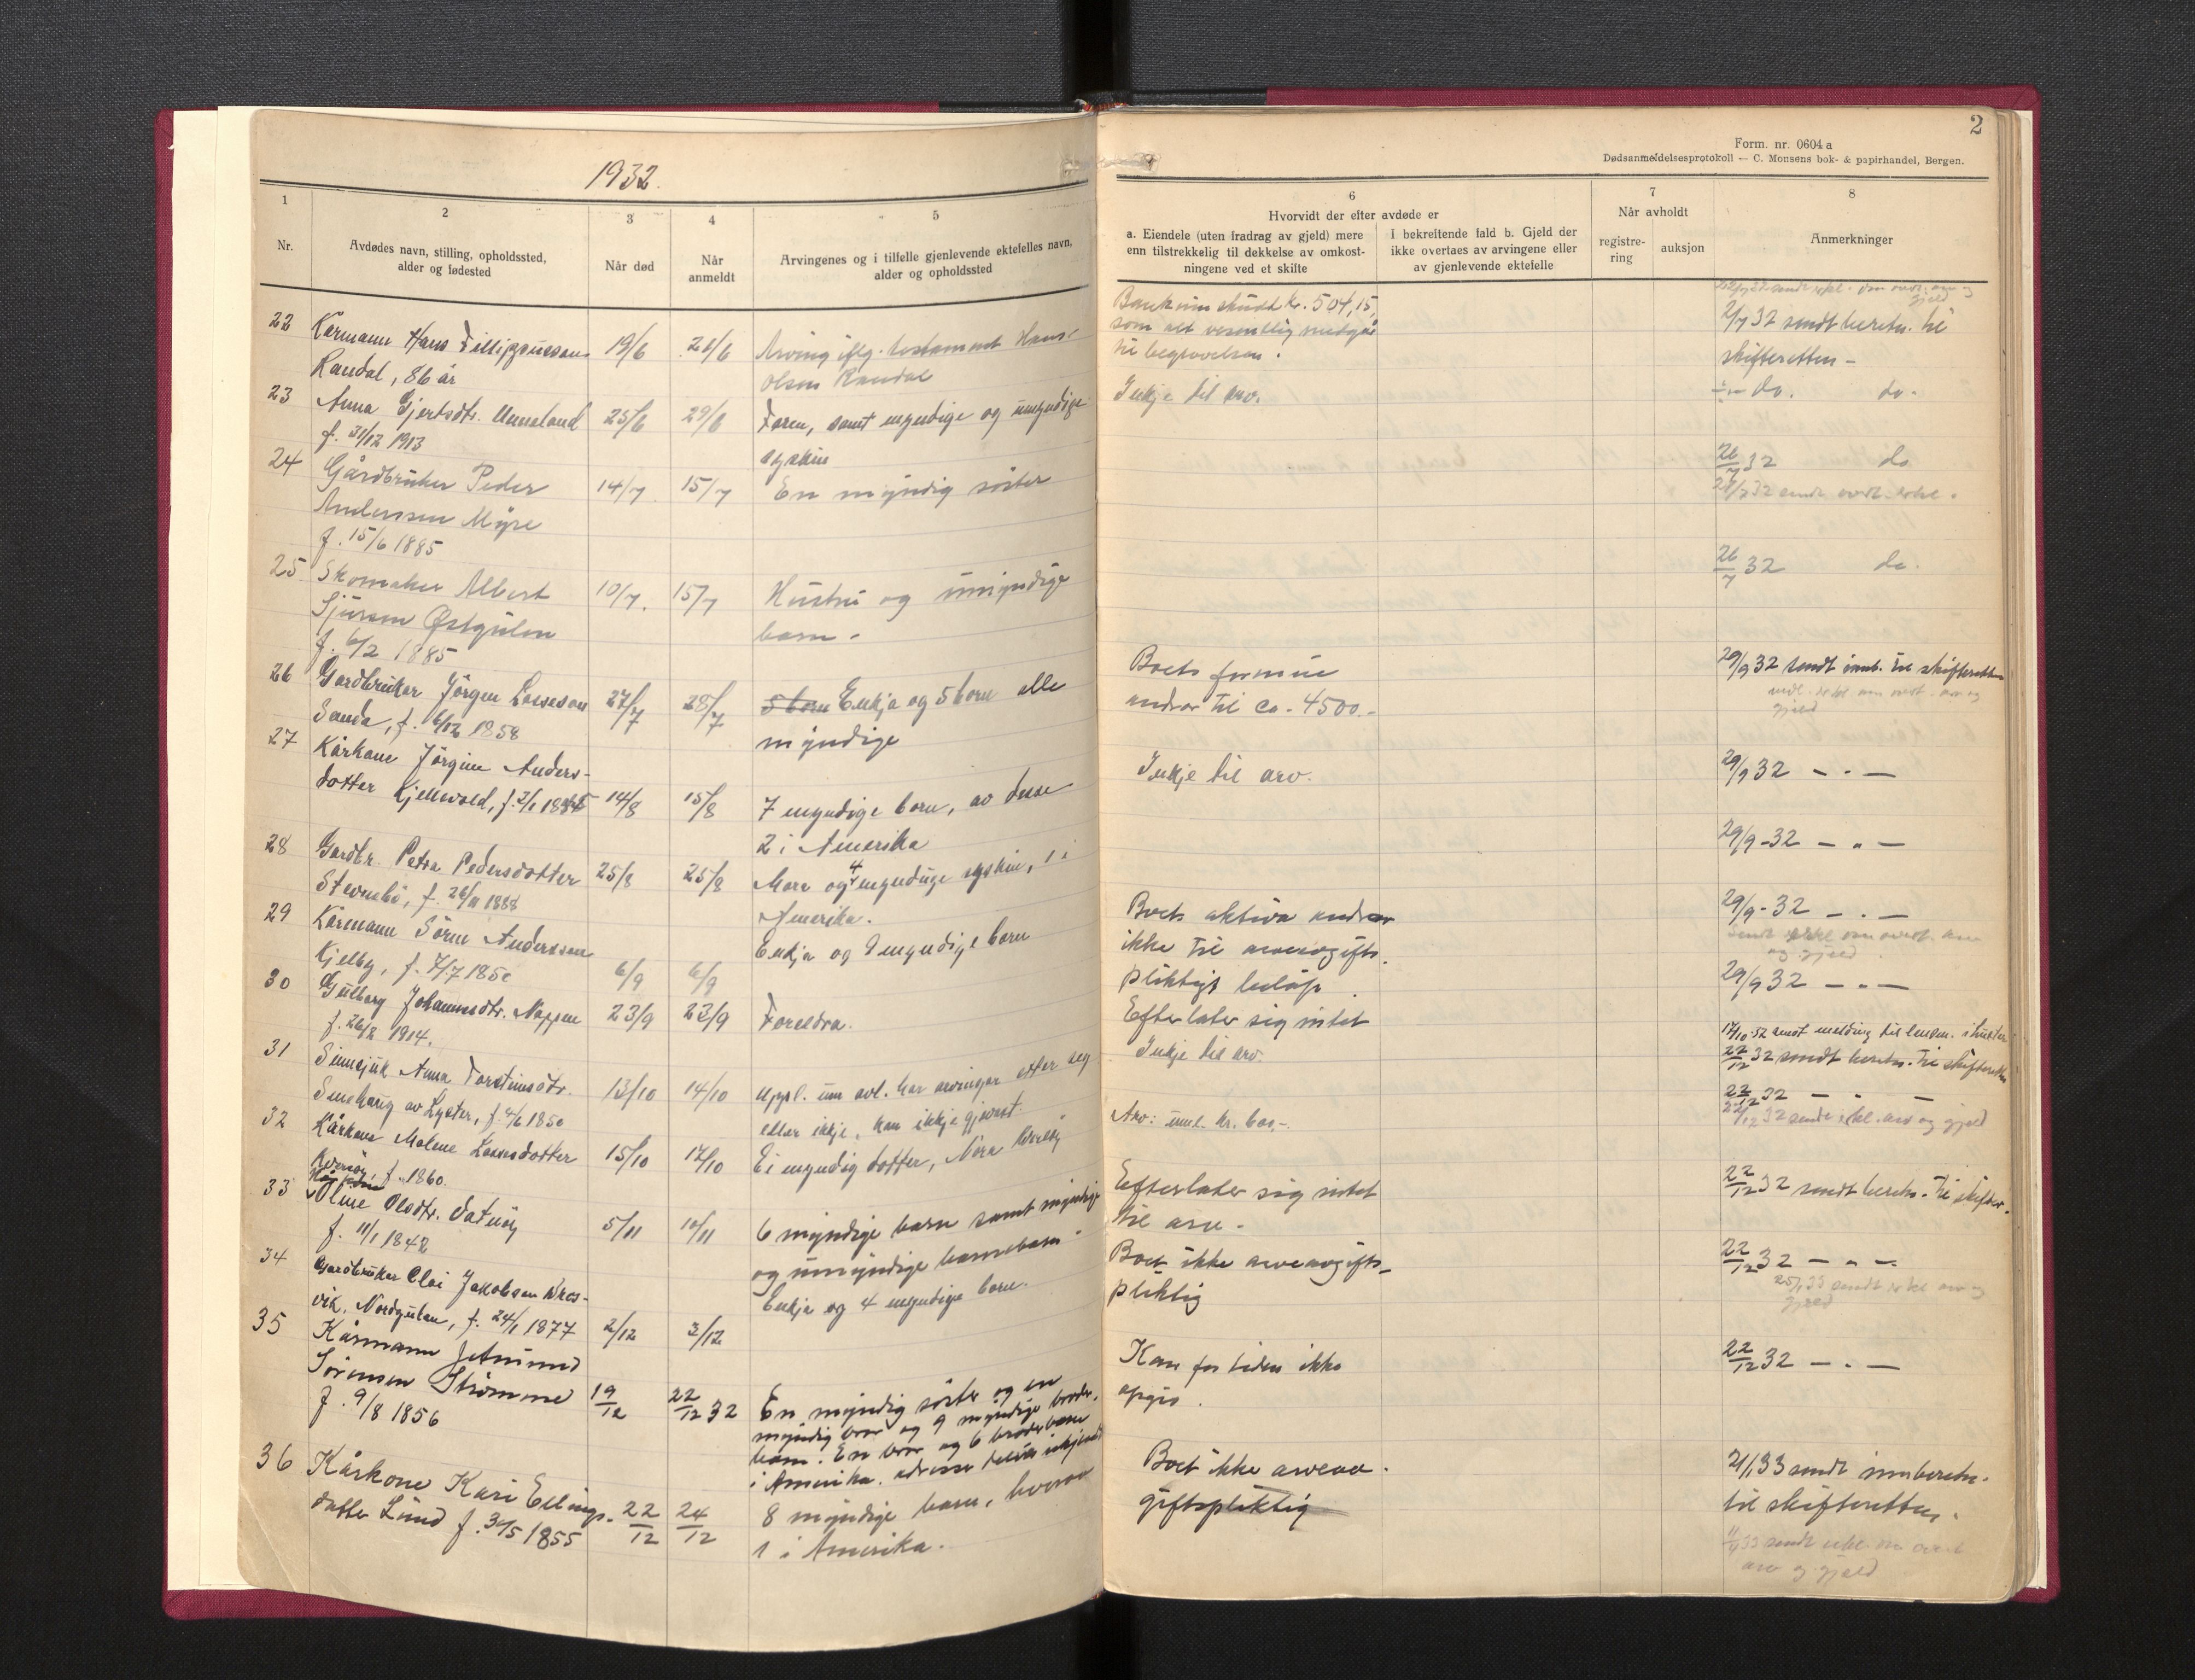 1932.
1
Nr.
2
Avdødes navn, stilling, opholdssted,
alder og fødested
3
Når død
4
Når
anmeldt
5
Arvingenes og i tilfelle gjenlevende ektefelles navn,
alder og opholdssted
22
Kårmann Hans Fillippusson
Randal, 86 år
19/6
21/6
Arving iflg. testament Hans
Olsen Randal
23
Anna Gjertsdtr. Unneland
f. 31/12 1913
25/6
29/6
Faren, samt myndige og umyndige
syskin
24
Gårdbruker Peder
Anderssen Myre
f. 15/6 1885
14/7
15/7
En myndig søster
25
Skomaker Albert
Sjursen Østgulen
f. 6/2 1885
10/7.
15/7
Hustru og umyndige
barn.
26
Gardbrukar Jörgen Lasseson
Sande, f. 6/12 1858
27/7
28/7
5 born Enkja og 5 born alle
myndige
27
Kårkone Jörgine Anders-
dotter Kjellevold, f. 2/1
14/8
15/8
7 myndige born, av desse
2 i Amerika
28
Gardbr. Petra Pedersdotter
Stevnebö, f. 26/11 1888
25/8
25/8
Mora og 4 myndige syskin, 1 i
Amerika.
29
Kårmann Sören Anderssen
Kjelby, f. 7/7 1850
6/9
6/9
Enkja og myndige born
30
Gulborg Johannesdtr. Noppen
f. 26/2 1914.
23/9
23/9
Foreldra.
31
Sinnsjuk Anna Torsteinsdtr.
av Lyster, f. 4/6 1850
13/10
14/10
Uppl. um avl. har arvingar etter seg
eller ikkje, kan ikkje gjevast.
32
Kårkone Malene Lassedotter
f. 1860.
15/10
17/10
Ei myndig dotter, Nora
33
Oline Olsdtr.
f. 11/1 1842
5/11
10/11
6 myndige barn samt myndige
og umyndige barnebarn
34
Gardbrukar Olai Jakobsen Nres-
vik, Nordgulen, f. 24/1 1877
2/12
3/12
Enkja og 4 myndige born.
35
Kårmann Jetmund
Sørensen Strømme
f. 9/8 1856
19/12
22/12 32
En myndig søster og en
myndig bror og 9 myndige broder-
barn. En bror og 6 broderbarn
i Amerika. adresse
36
Kårkone Kari Ellings-
datter Lund f. 31/5 1855
22/12
24/12
8 myndige barn, hvorav
1 i Amerika.
2
Form. nr. 0604 a
Dødsanmeldelsesprotokoll — C. Monsens bok- & papirhandel, Bergen.
6
Hvorvidt der efter avdøde er
a. Eiendele (uten fradrag av gjeld) mere
enn tilstrekkelig til dekkelse av omkost-
ningene ved et skifte
I bekreftende fald b. Gjeld der
ikke overtaes av arvingene eller
av gjenlevende ektefelle
7
Når avholdt
registre-
ring
auksjon
8
Anmerkninger
Bankinnskudd kr. 504,15,
som alt vesentlig medgår
til begravelsen.
2/7 32 sendt beretn. til
skifteretten -
Inkje til arv.
do. do.
26/7 32 do
28/7 32 sendt
26/7 32 do.
Boets formue
andrar til ca. 4500.-
29/9 32 sendt innb. til skifteretten
gjeld
Inkje til arv.
29/9 32 — " —
29/9-32 — " —
Boets aktiva andrar
ikke til arveavgifts-
pliktigt beløp.
29/9-32 — " —
og gjeld
Efterlater sig intet
29/9 32 — " —
Inkje til arv
17/10 32 sendt melding til lensm. i Luster
22/12 32 sendt beretn. til skifteretten
Arv: uml. kr. 600,-.
22/12 32 — " —
22/12 32 sendt erkl. arv og gjeld
Efterlater sig intet
til arv.
22/12 32 sendt beretn. til skifter.
Boet ikke arveavgifts-
pliktig
22/12 32 — " —
25/1 33 sendt erkl arv og
gjeld
Kan for tiden ikke
opgis.
22/12 32 — " —
Boet ikke arveav-
giftspliktig
2/1 33 sendt innberetn.
til skifteretten.
33 sendt erkl. om overt.
arv og gjeld